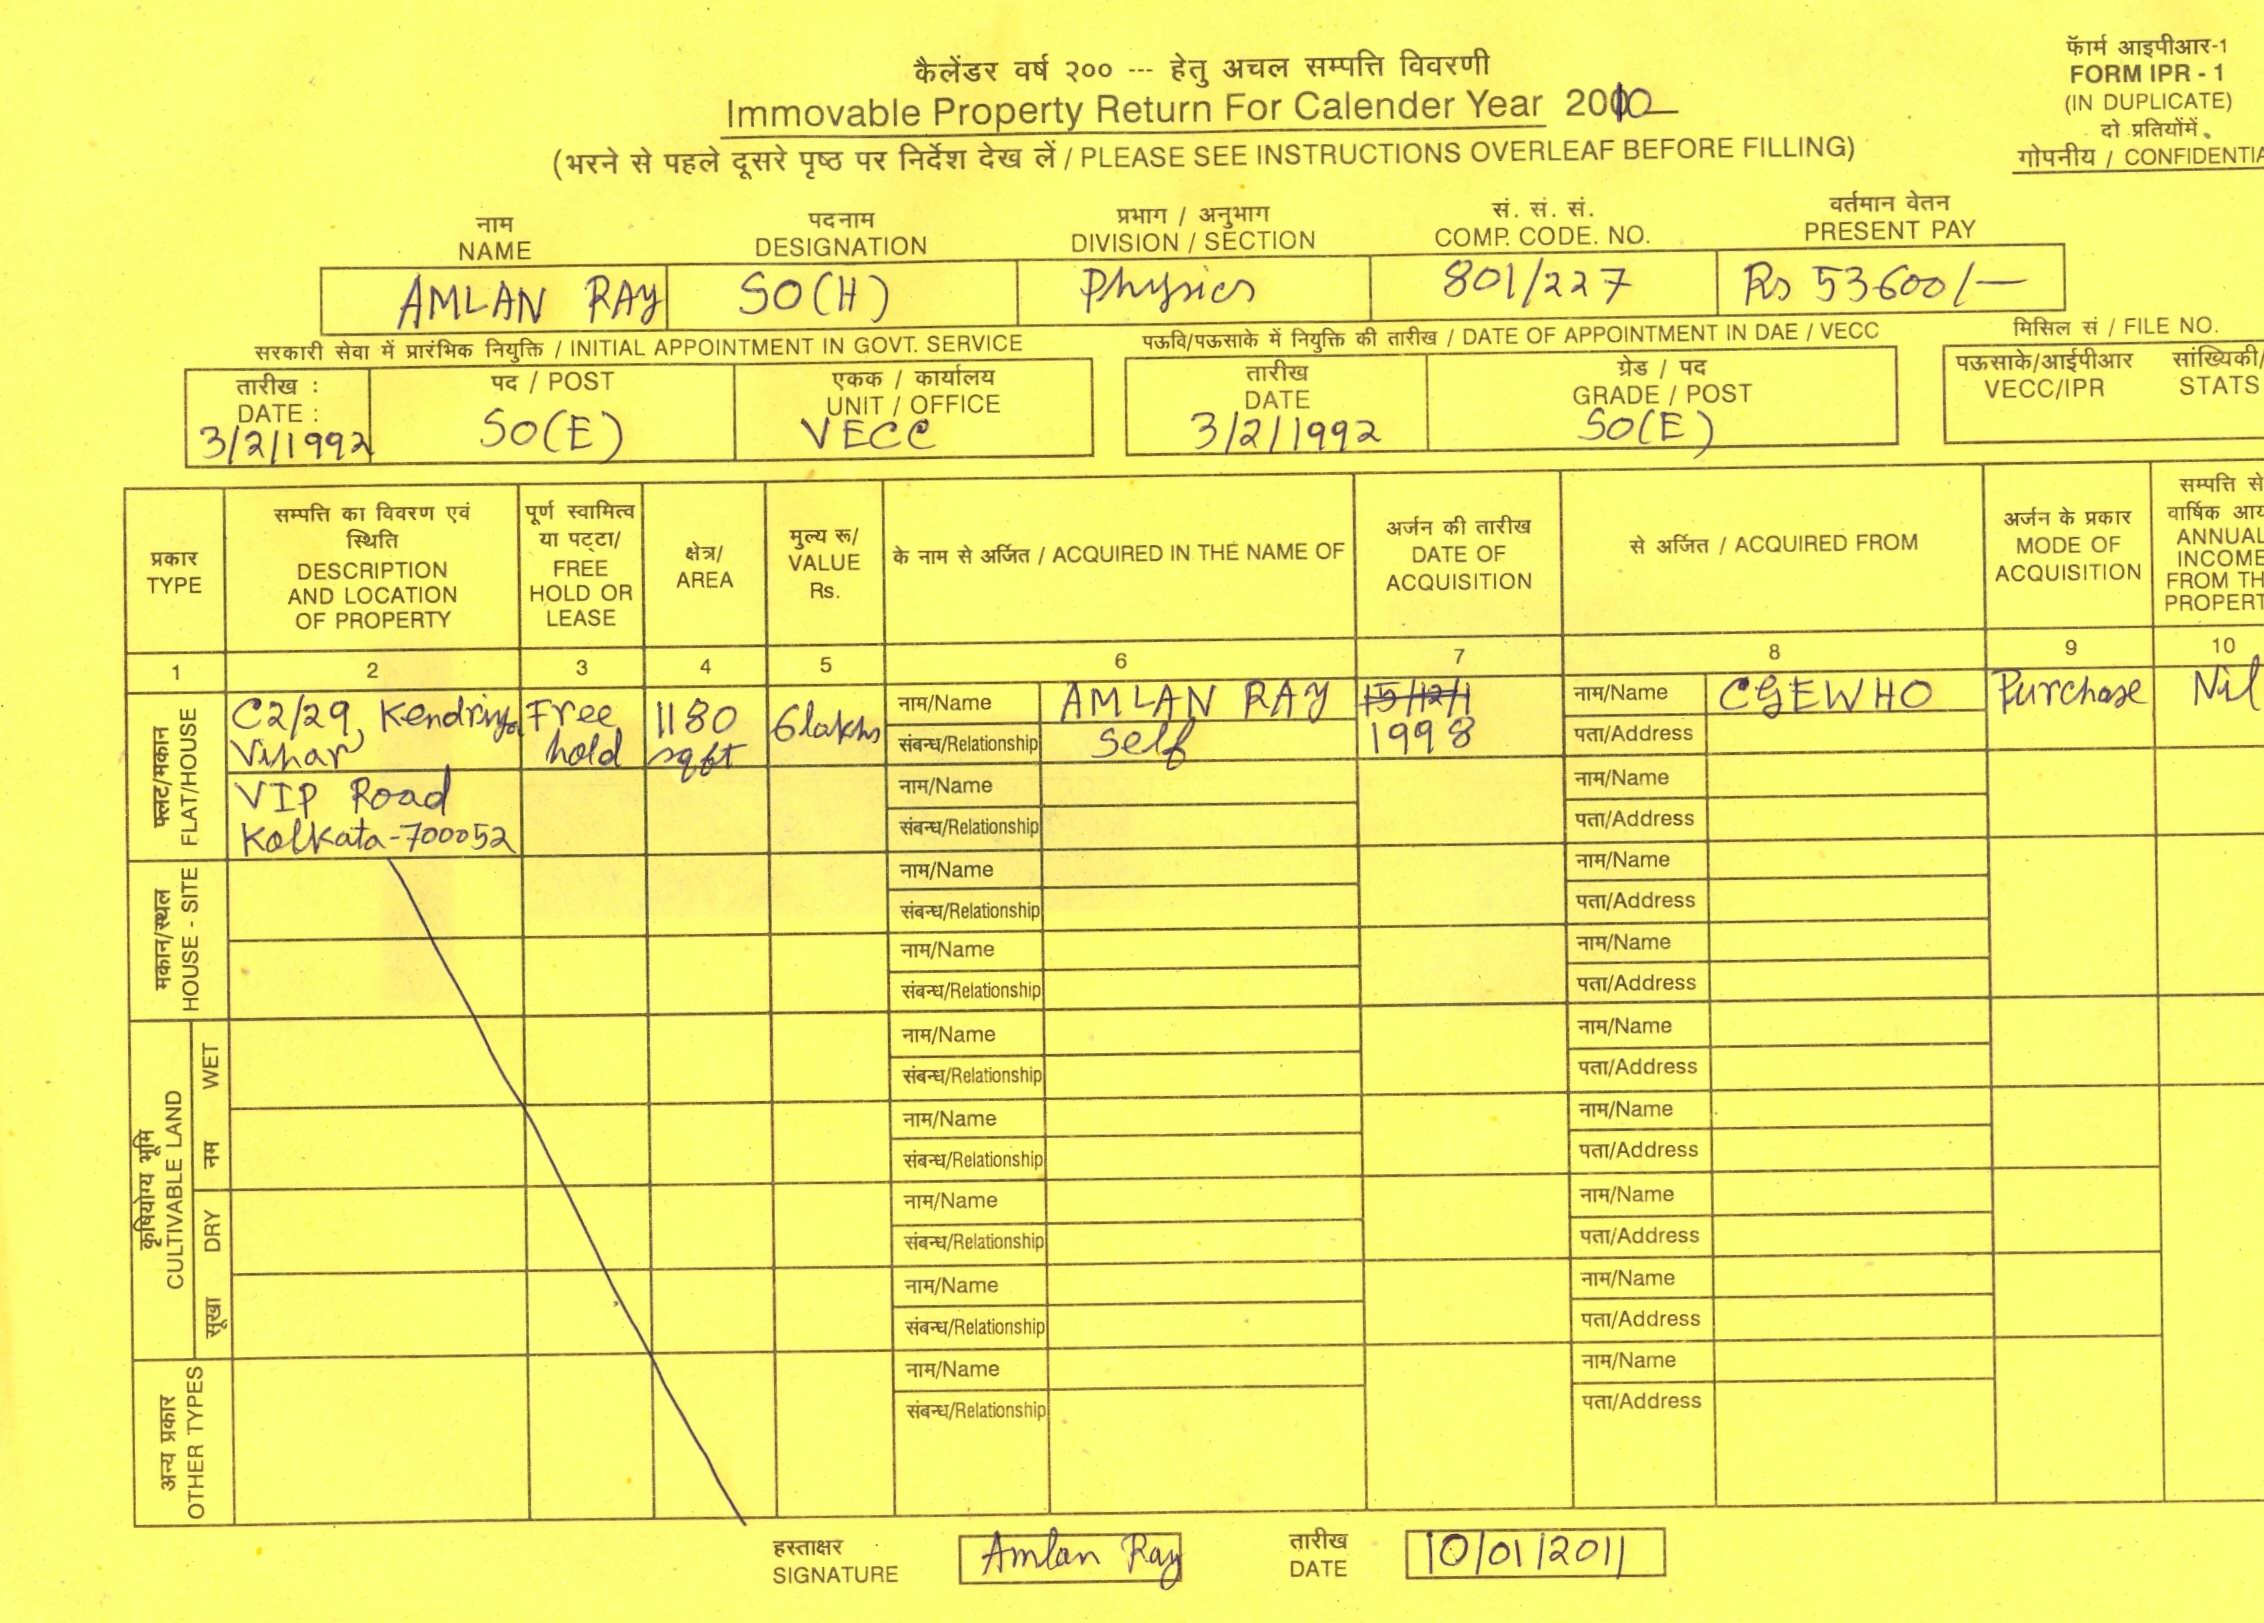 फॅार्म आइपीआर-1
FORM IPR - 1
(IN DUPLICATE)
दो प्रतियोंमें
गोपनीय / CONFIDENTIA
कैलेंडर वर्ष २०० --- हेतु अचल सम्पत्ति विवरणी
Immovable Property Return For Calender Year 2010
(भरने से पहले दूसरे पृष्ठ पर निर्देश देख लें / PLEASE SEE INSTRUCTIONS OVERLEAF BEFORE FILLING)
नाम पदनाम प्रभाग / अनुभाग सं. सं. सं. वर्तमान वेतन
NAME DESIGNATION DIVISION / SECTION COMP. CODE. NO. PRESENT PAY
AMLAN RAY SO(H) Physics 801/227 Rs 53600/-
सरकारी सेवा में प्रारंभिक नियुक्ति / INITIAL APPOINTMENT IN GOVT. SERVICE पऊवि/पऊसाके में नियुक्ति की तारीख / DATE OF APPOINTMENT IN DAE / VECC मिसिल सं / FILE NO.
तारीख : पद / POST एकक / कार्यालय तारीख ग्रेड / पद पऊसाके/आईपीआर सांख्यिकी/
DATE : UNIT / OFFICE DATE GRADE / POST VECC/IPR STATS
3/2/1992 SO(E) VECC 3/2/1992 SO(E)
प्रकार
TYPE
सम्पत्ति का विवरण एवं
स्थिति
DESCRIPTION
AND LOCATION
OF PROPERTY
पूर्ण स्वामित्व
या पट्टा/
FREE
HOLD OR
LEASE
क्षेत्र/
AREA
मुल्य रू/
VALUE
Rs.
के नाम से अर्जित / ACQUIRED IN THE NAME OF
अर्जन की तारीख
DATE OF
ACQUISITION
से अर्जित / ACQUIRED FROM
अर्जन के प्रकार
MODE OF
ACQUISITION
सम्पत्ति से
वार्षिक आय
ANNUAL
INCOME
FROM TH
PROPERT
1 2 3 4 5 6 7 8 9 10
फ्लैट/मकान
FLAT/HOUSE
C2/29, Kendriya Free 1180 6 lakhs नाम/Name AMLAN RAY 15/12/1 नाम/Name CGEWHO Purchase Nil
Vihar hold sqft संबन्ध/Relationship Self 1998 पता/Address
VIP Road नाम/Name नाम/Name
Kolkata-700052 संबन्ध/Relationship पता/Address
मकान/स्थल
HOUSE - SITE
नाम/Name नाम/Name
संबन्ध/Relationship पता/Address
नाम/Name नाम/Name
संबन्ध/Relationship पता/Address
कृषियोग्य भूमि
CULTIVABLE LAND
नम WET
नाम/Name नाम/Name
संबन्ध/Relationship पता/Address
नाम/Name नाम/Name
संबन्ध/Relationship पता/Address
सूखा DRY
नाम/Name नाम/Name
संबन्ध/Relationship पता/Address
नाम/Name नाम/Name
संबन्ध/Relationship पता/Address
अन्य प्रकार
OTHER TYPES
नाम/Name नाम/Name
संबन्ध/Relationship पता/Address
हस्ताक्षर तारीख
SIGNATURE Amlan Ray DATE 10/01/2011